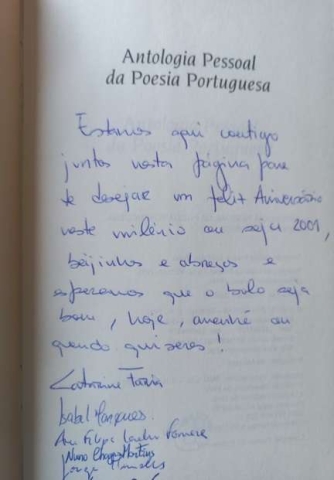 Antologia Pessoal
da Poesia Portuguesa
Estamos aqui contigo
juntos nesta página para
te desejar um feliz Aniversário
neste milénio ou seja 2001,
beijinhos e abraços e
esperamos que o bolo seja
bom, hoje, amanhã ou
quando quiseres!
Catarina Faria
Isabel Marques
Ana Filipa
Nuno Chagas Martins
Jorge